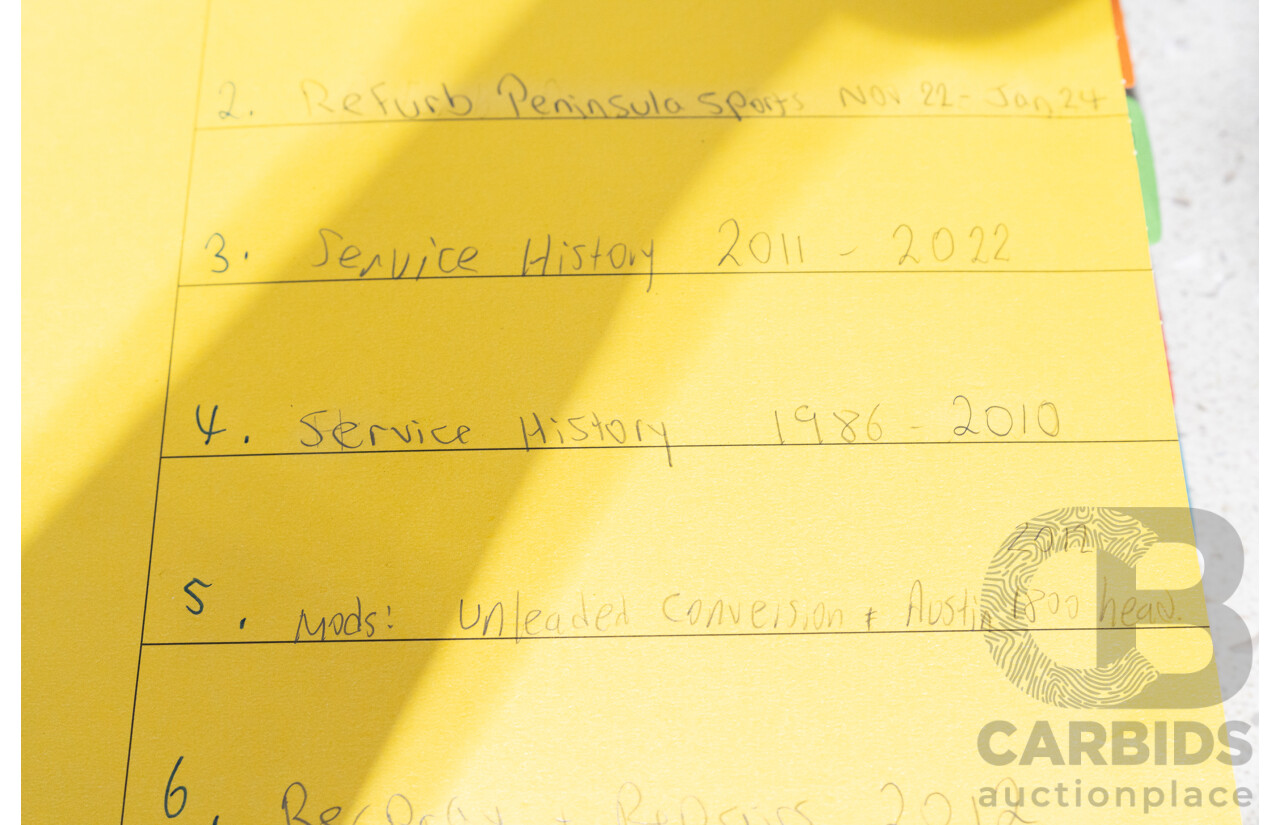 2. Refurb Peninsula Sports Nov 22 - Jan 24
3. Service History 2011 - 2022
4. Service History 1986 - 2010
2012
5. Mods: Unleaded Conversion & Austin 1800 head.
6. Respray + Repairs 2012
CARBIDS
auctionplace